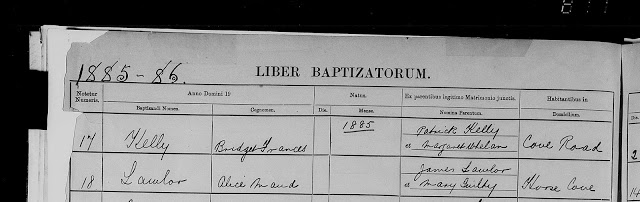 1885-86.
LIBER BAPTIZATORUM.
Notetur Numeris.
Anno Domini 19
Natus.
Ex parentibus legitimo Matrimonio junctis.
Habitantibus in
Baptizandi Nomen.
Cognomen.
Die.
Mense.
Nomina Parentum.
Domicilium.
1885
17 Kelly Bridget Frances Patrick Kelly
et Margaret Whelan Cove Road
18 Lawlor Alice Maud James Lawlor
et Mary Guilty Horse Cove